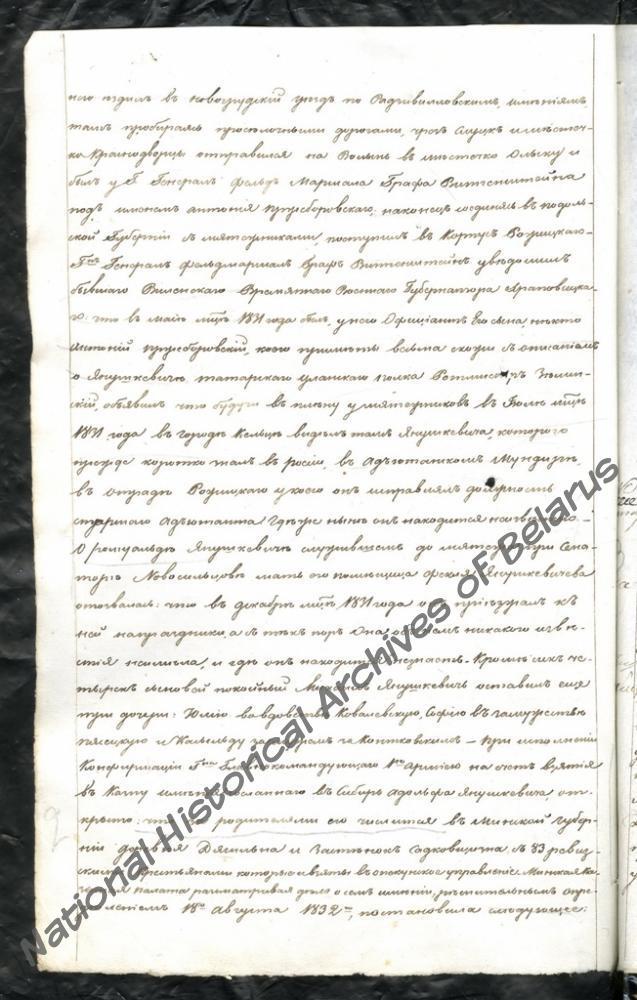 него ездил въ Новогрудский уездъ по Радзивилловскимъ имениямъ,
тамъ пробираясь проселочными дорогами, чрезъ Слуцкъ и местеч-
ко Краснодворцы отправился на Волынь въ местечко Олыку и
былъ у Г. Генералъ Фельдъ Маршала Графа Витгенштейна
подъ именемъ Антония Пржеборовскаго, наконецъ соединясь въ Подоль-
ской Губернии съ мятежниками, поступилъ въ Корпусъ Рожицкаго –
Гнъ Генералъ Фельдмаршалъ Графъ Витгенштейнъ уведомилъ
бывшаго Виленскаго Временнаго Военнаго Губернатора Храповицка-
го: что въ Маие мце 1831 года былъ у него Официантъ Его сына, некто
Антоний Пржеборовский, коего приметы весьма схожи съ описаниемъ
о Янушкевиче татарскаго уланскаго полка Ротмистръ
ский, объявилъ что будучи въ плену у мятежниковъ въ Июле мце
1831 года въ городе Кельце виделъ тамъ Янушкевича, котораго
прежде коротко зналъ въ росии, въ Адъютанскомъ Мундире,
въ отряде Рожицкаго у коего онъ исправлялъ должность
старшаго адъютанта где же ныне онъ находится неизвестно. –
О ромуальде Янушкевиче служившемъ до мятежа при Сена-
торе Новосильцове мать его помещица Фекла Янушкевичева
отозвалась: что въ декабре мце 1831 года онъ приезжалъ къ
ней на праздники, а съ техъ поръ Она объ немъ никакого изве-
стия не имела, и где онъ находится не знаетъ. Кроме сихъ че-
тырехъ сыновей покойный Михаилъ Янушкевичъ оставилъ еще
три дочери: Юлию во вдовстве Ковалевскую, Софию въ замужстве
Пясецкую и Камильду за Контковскимъ – При исполнении
Конфирмации Гна Главнокомандующаго 1ю Армиею на счетъ взятия
въ Казну имения сосланнаго въ Сибирь Адольфа Янушкевича от-
крыто: что за родителями его числится въ Минской Губер-
нии деревня Дягильна и Застенокъ Садковщизна, съ 83 ревиз-
скими крестьянами которые и взяты въ опекунское управление. Минская Ка-
зенная палата разсматривая дело о семъ имении, решительнымъ опре-
делениемъ 18го Августа 1832го, постановила следующее:
National Historical Archives of Belarus